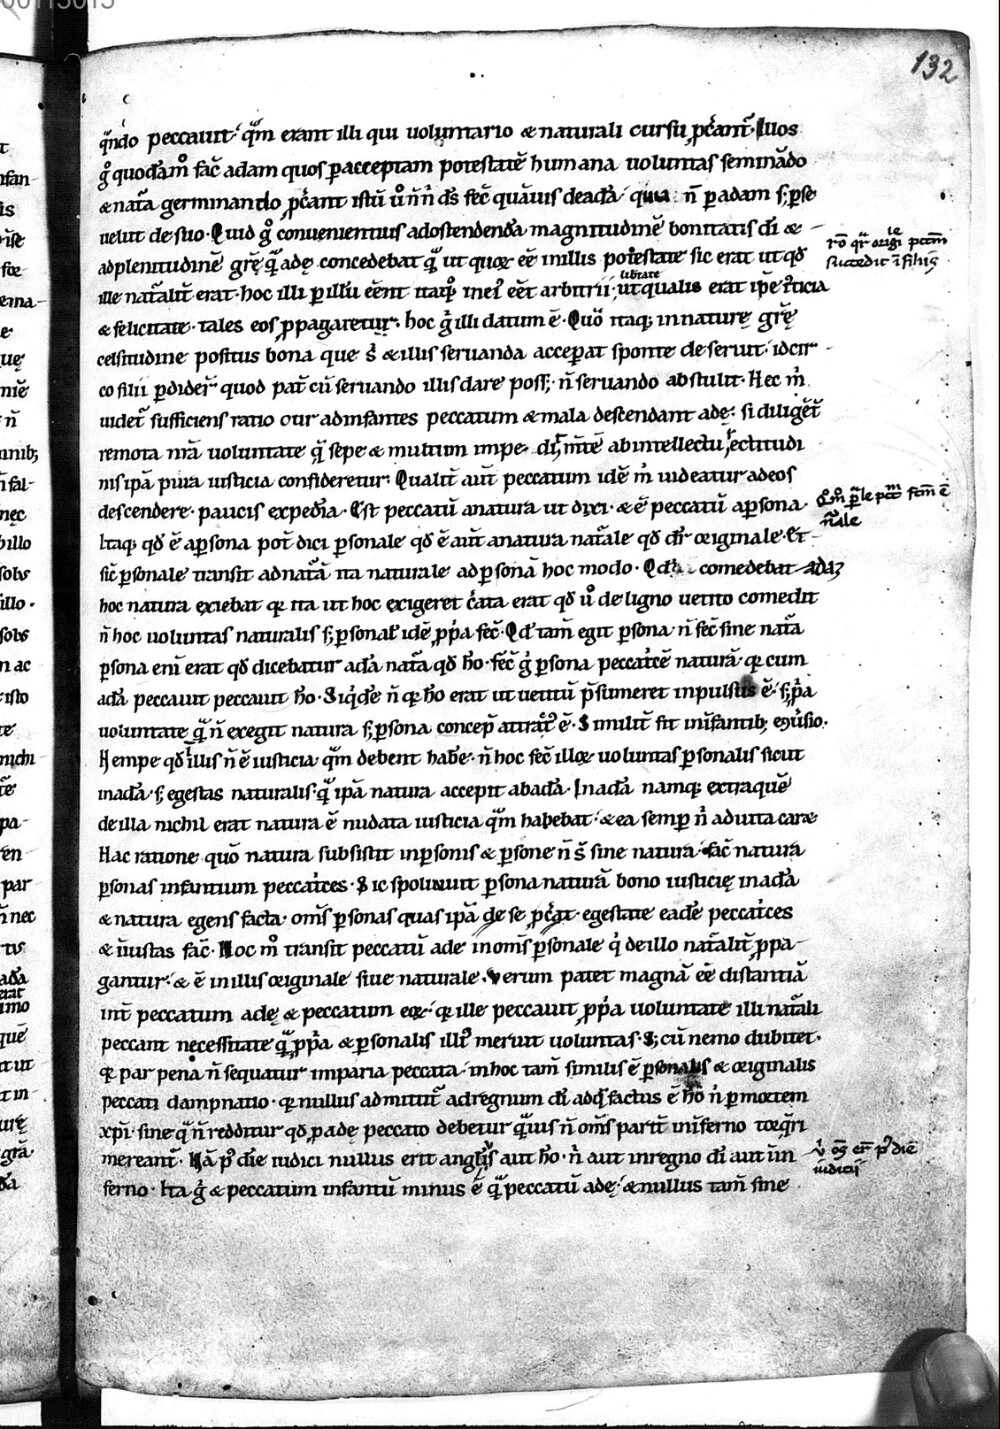 132
qn̄do peccauit· qͣm erant illi qui uoluntario & naturali cursu ꝓc̄ant᷑· Illos
g̊ quodāmͦ fac̄ adam quos ꝑ acceptam potestatē humana uoluntas seminādo
& nat᷑a germinando ꝓc̄ant istū u̾ n̄ n̄ d̄s fec̄ quāuis de adā· quia n̄ ꝑ adam s; ꝑ se
uelut de suo· Quid g̊ conuenientius ad ostendendā magnitudinē bonitatis dī &
ad plenitudinē gr̄ę qͣ adę concedebat᷑ qͣ ut quoꝝ eē in illis potestate sic erat ut qd̄
libtate
ille nat᷑alit᷑ erat· hoc illi ꝑ illū eēnt itaqꝫ in ei eēt arbitrii· ut qualis erat ip̄e
& felicitate· tales eos ꝓpagaret᷑· hoc g̊ illi datum ē· Quō itaqꝫ in naturę gr̄ę
celsitudine positus bona que s̄ & illis seruanda acceꝑat sponte deseruit· idcir
co filii ꝑdider̄ quod pat᷑ cū seruando illis dare poss;· n̄ seruando abstulit· Hec m̄
uidet᷑ sufficiens ratio cur ad infantes peccatum & mala descendant adę· si diligēt᷑
remota nr̄a uoluntate qͣ sepe & multum impedit m̄tē ab intellectu rectitudi
nis ipā pura iusticia consideretur· Qualit᷑ aut̄ peccatum idē m̄ uideatur ad eos
descendere· paucis expediā· Est peccatū a natura ut dixi· & ē peccatū a ꝑsona·
Itaqꝫ qd̄ ē a ꝑsona pot̄ dici ꝑsonale qd̄ ē aut̄ a natura nat᷑ale qd̄ dr̄ originale· Et
sic̄ ꝑsonale transit ad nat᷑ā ita naturale ad ꝑsonā hoc modo· Qd̄ comedebat adā
hoc natura exiebat qꝛ ita ut hoc exigeret c̄ata erat qd̄ u̾ de ligno uetito comedit
n̄ hoc uoluntas naturalis s; ꝑsonal̄ idē ꝓp̄a fec̄· Qd̄ tam̄ egit ꝑsona n̄ fec̄ sine nat᷑a
ꝑsona eni᷑ erat qd̄ dicebatur adā nat᷑a qd̄ hō· fec̄ g̊ ꝑsona peccat᷑cē naturā· qꝛ cum
adā peccauit peccauit hō· Siqdē n̄ qꝛ hō erat ut uetitū p̄sumeret inpulsus ē· s; ꝓp̄a
uoluntate qͣ n̄ exegit natura s; ꝑsona concep̄ attract̾ ē· Similit᷑ fit in infantib; ꝯuerso·
Nempe qd̄ illis n̄ ē iusticia qͣm debent habē· n̄ hoc fec̄ illoꝝ uoluntas ꝑsonalis sicut
in adā· s; egestas naturalis qͣ ipā natura accepit ab adā· In adā namqꝫ extra quē
de illa nichil erat natura ē nudata iusticia qͣm habebat· & ea semꝑ n̄ adiuta caret
Hac ratione quō natura subsistit in ꝑsonis & ꝑsone n̄ s̄ sine natura· fac̄ natura
ꝑsonas infantium peccat᷑ces· Sic spoliauit ꝑsona naturā bono iusticię in adā
& natura egens facta· om̄s ꝑsonas quas ipā de se ꝓc̄at· egestate eadē peccat᷑ces
& iniustas fac̄· Hoc mͦ transit peccatū ade in om̄s ꝑsonale q̇ de illo nat᷑alit᷑ ꝓpa
gantur· & ē in illis originale siue naturale· Verum patet magnā eē distantiā
int᷑ peccatum adę & peccatum eoꝝ· qꝛ ille peccauit ꝓp̄a uoluntate illi nat᷑ali
peccant necessitate qͣ ꝓp̄a & ꝑsonalis illiꝰ meruit uoluntas· S; cū nemo dubitet·
qꝛ par pena n̄ sequatur imparia peccata· in hoc tam̄ similis ē ꝑsonalis & originalis
peccati dampnatio· qꝛ nullus admittit᷑ ad regnum dī ad qd̄ factus ē hō n̄ ꝑ mortem
xp̄i· sine qͣ n̄ redditur qd̄ ꝓ adę peccato debetur qͣuis n̄ om̄s parit᷑ in inferno torq̄ri
mereant᷑· Nā pꝰ diē iudicii nullus erit anglꝰs aut hō· n̄ aut in regno dī aut in in
ferno· Ita g̊ & peccatum infantū minus ē qͣ peccatū adę· & nullus tam̄ sine
rō qr̄ origile pccm̄
succedit ī filiis
iudicii